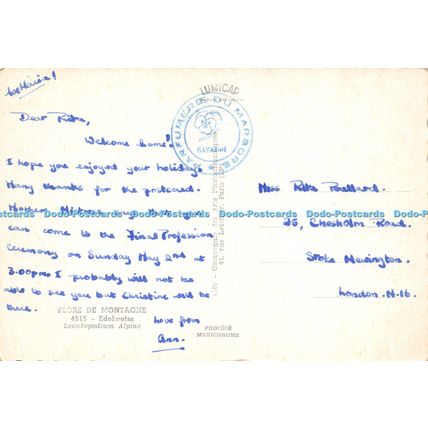 Dear Rita,
Welcome home!
I hope you enjoyed your holiday
Many thanks for the postcard.
Mother says you
can come to the Final Profession
Ceremony on Sunday May 2nd at
3.00pm I probably will not be
able to see you but Christine will be
there.
Love from
Ann.
FLORE DE MONTAGNE
4515 - Edelweiss
Leontopodium Alpina
PROCÉDÉ
MEXICHROME
LUMICAP
PARFUMERIE DU MARBORE
GAVARNIE
Miss Rita Pollard.
35, Chesholm Road.
Stoke Newington.
London. N.16.
Dodo-Postcards Dodo-Postcards Dodo-Postcards Dodo-Postcards Dodo-Postcards Dodo-Postcards